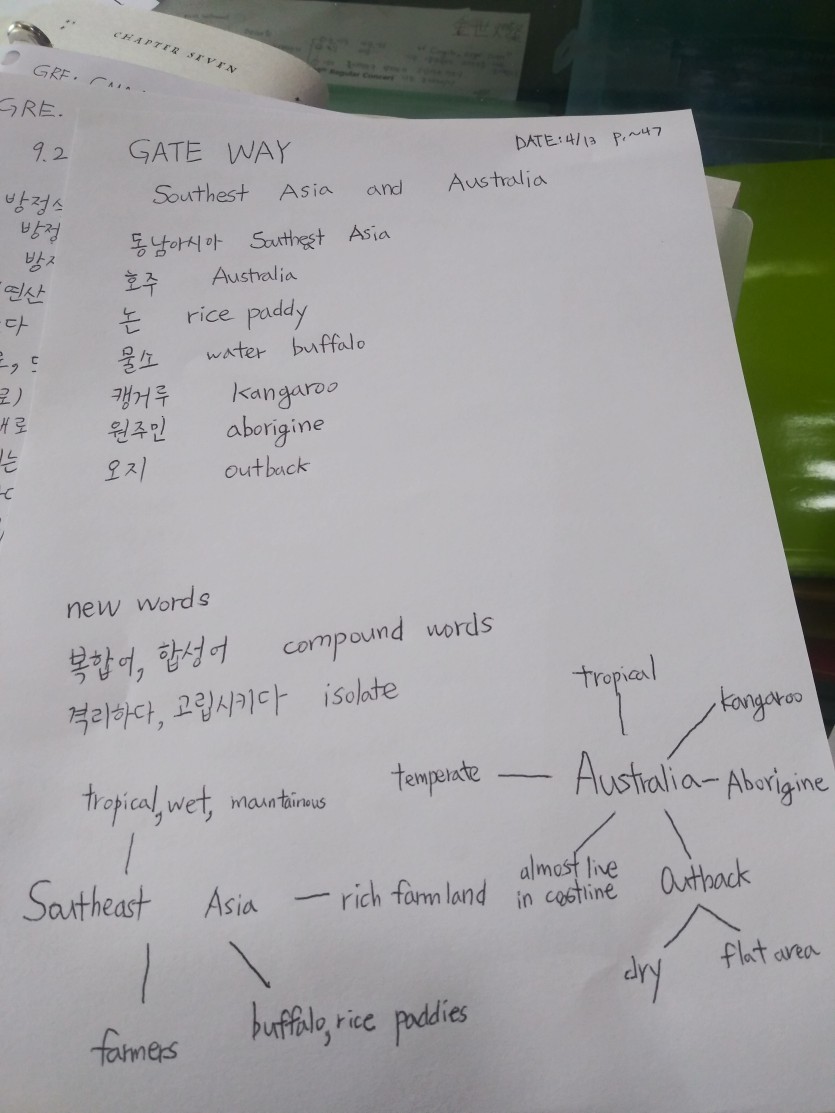 CHAPTER SEVEN
GRE.
GRE.
9.2
방정
방정
방
연산
다
GATE WAY
DATE: 4/13 P.~47
Southest Asia and Australia
동남아시아 Southest Asia
호주 Australia
논 rice paddy
물소 water buffalo
캥거루 kangaroo
원주민 aborigine
오지 outback
new words
복합어, 합성어 compound words
격리하다, 고립시키다 isolate
tropical
kangaroo
temperate — Australia — Aborigine
tropical, wet, mauntainous
almost live
in costline
Outback
dry
flat area
Southeast Asia — rich farm land
farmers
buffalo, rice paddies